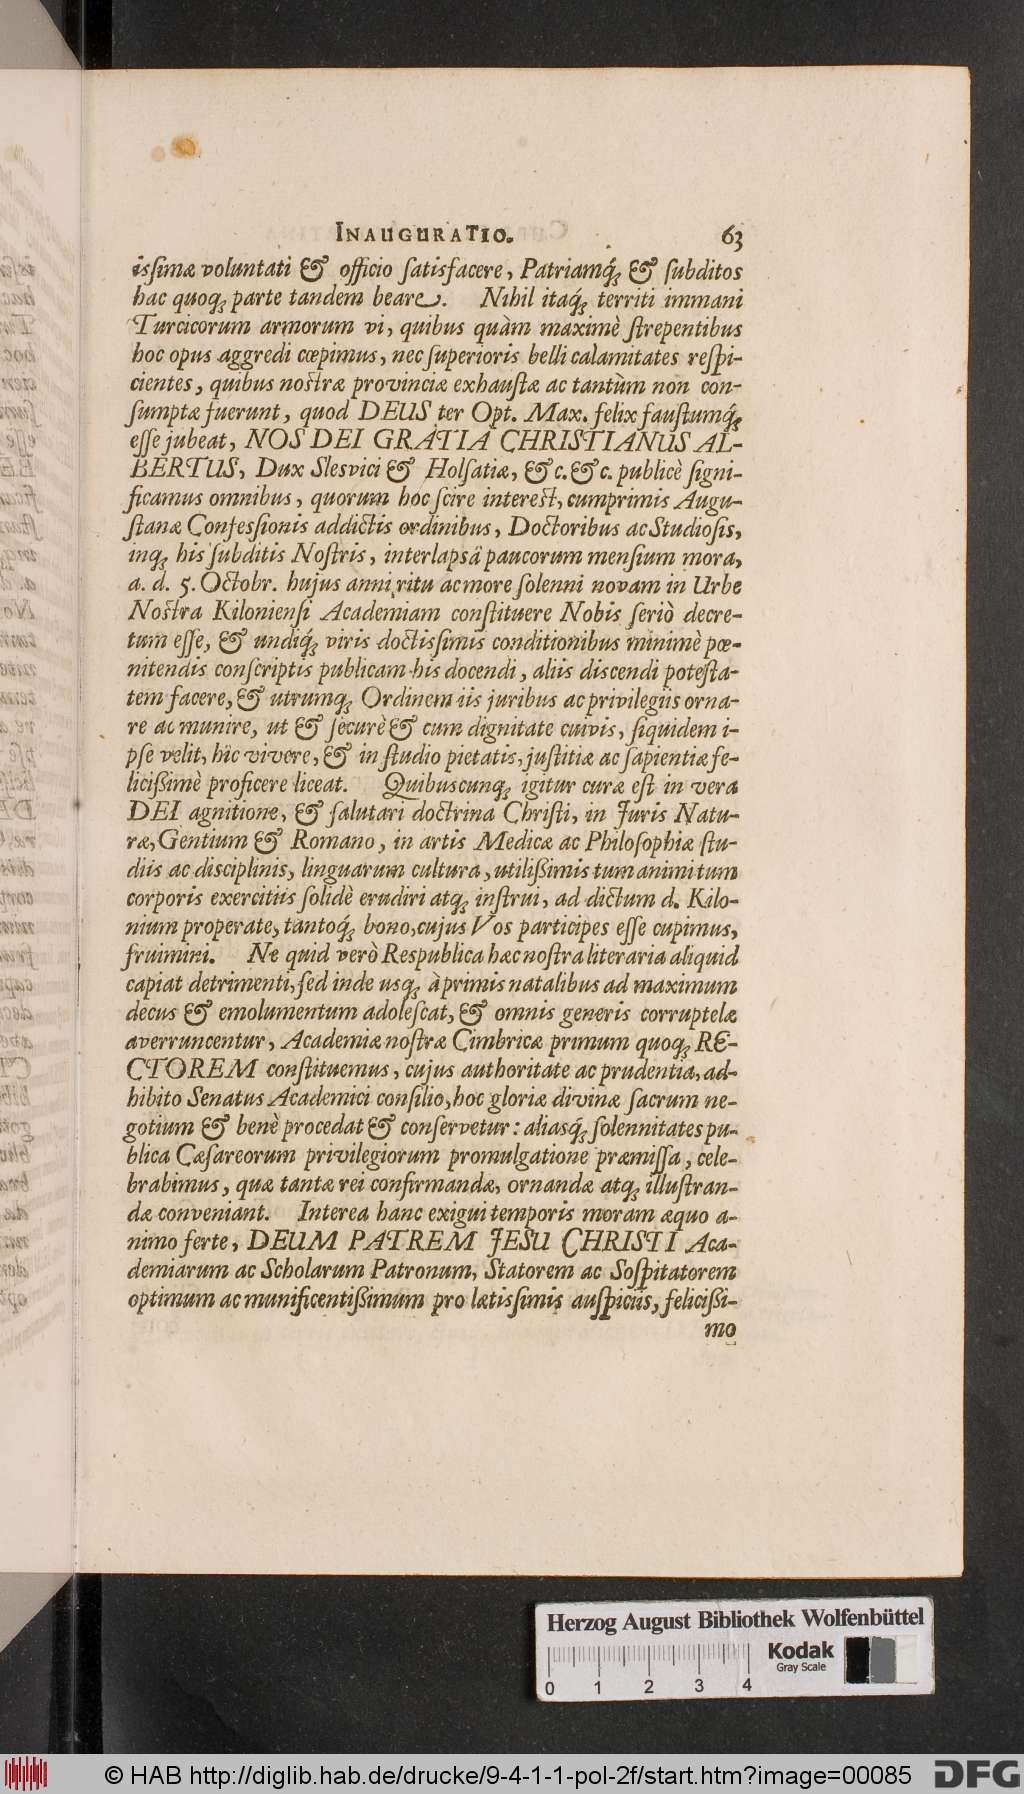 INAUGURATIO. 63
issimæ voluntati & officio satisfacere, Patriamq́; & subditos
hac quoq; parte tandem beare. Nihil itaq́; territi immani
Turcicorum armorum vi, quibus quàm maximè strepentibus
hoc opus aggredi cœpimus, nec superioris belli calamitates respi-
cientes, quibus nostræ provinciæ exhaustæ ac tantùm non con-
sumptæ fuerunt, quod DEUS ter Opt. Max. felix faustumq́;
esse jubeat, NOS DEI GRATIA CHRISTIANUS AL-
BERTUS, Dux Slesvici & Holsatiæ, &c. &c. publicè signi-
ficamus omnibus, quorum hoc scire interest, cumprimis Augu-
stanæ Confessionis addictis ordinibus, Doctoribus ac Studiosis,
inq; his subditis Nostris, interlapsâ paucorum mensium mora,
a. d. 5. Octobr. hujus anni ritu ac more solenni novam in Urbe
Nostra Kiloniensi Academiam constituere Nobis seriò decre-
tum esse, & undiq́; viris doctissimis conditionibus minimè pœ-
nitendis conscriptis publicam his docendi, aliis discendi potesta-
tem facere, & utrumq; Ordinem iis juribus ac privilegiis orna-
re ac munire, ut & securè & cum dignitate cuivis, siquidem i-
pse velit, hîc vivere, & in studio pietatis, justitiæ ac sapientiæ fe-
licissimè proficere liceat. Quibuscunq; igitur curæ est in vera
DEI agnitione, & salutari doctrina Christi, in Juris Natu-
ræ, Gentium & Romano, in artis Medicæ ac Philosophiæ stu-
diis ac disciplinis, linguarum cultura, utilissimis tum animi tum
corporis exercitiis solidè erudiri atq; instrui, ad dictum d. Kilo-
nium properate, tantoq́; bono, cujus Vos participes esse cupimus,
fruimini. Ne quid verò Respublica hæc nostra literaria aliquid
capiat detrimenti, sed inde usq; à primis natalibus ad maximum
decus & emolumentum adolescat, & omnis generis corruptelæ
averruncentur, Academiæ nostræ Cimbricæ primum quoq; RE-
CTOREM constituemus, cujus authoritate ac prudentia, ad-
hibito Senatus Academici consilio, hoc gloriæ divinæ sacrum ne-
gotium & benè procedat & conservetur: aliasq́; solennitates pu-
blica Cæsareorum privilegiorum promulgatione præmissa, cele-
brabimus, quæ tantæ rei confirmandæ, ornandæ atq; illustran-
dæ conveniant. Interea hanc exigui temporis moram æquo a-
nimo ferte, DEUM PATREM JESU CHRISTI Aca-
demiarum ac Scholarum Patronum, Statorem ac Sospitatorem
optimum ac munificentissimum pro lætissimis auspiciis, felicissi-
mo
Herzog August Bibliothek Wolfenbüttel
Kodak
Gray Scale
0 1 2 3 4
© HAB http://diglib.hab.de/drucke/9-4-1-1-pol-2f/start.htm?image=00085 DFG